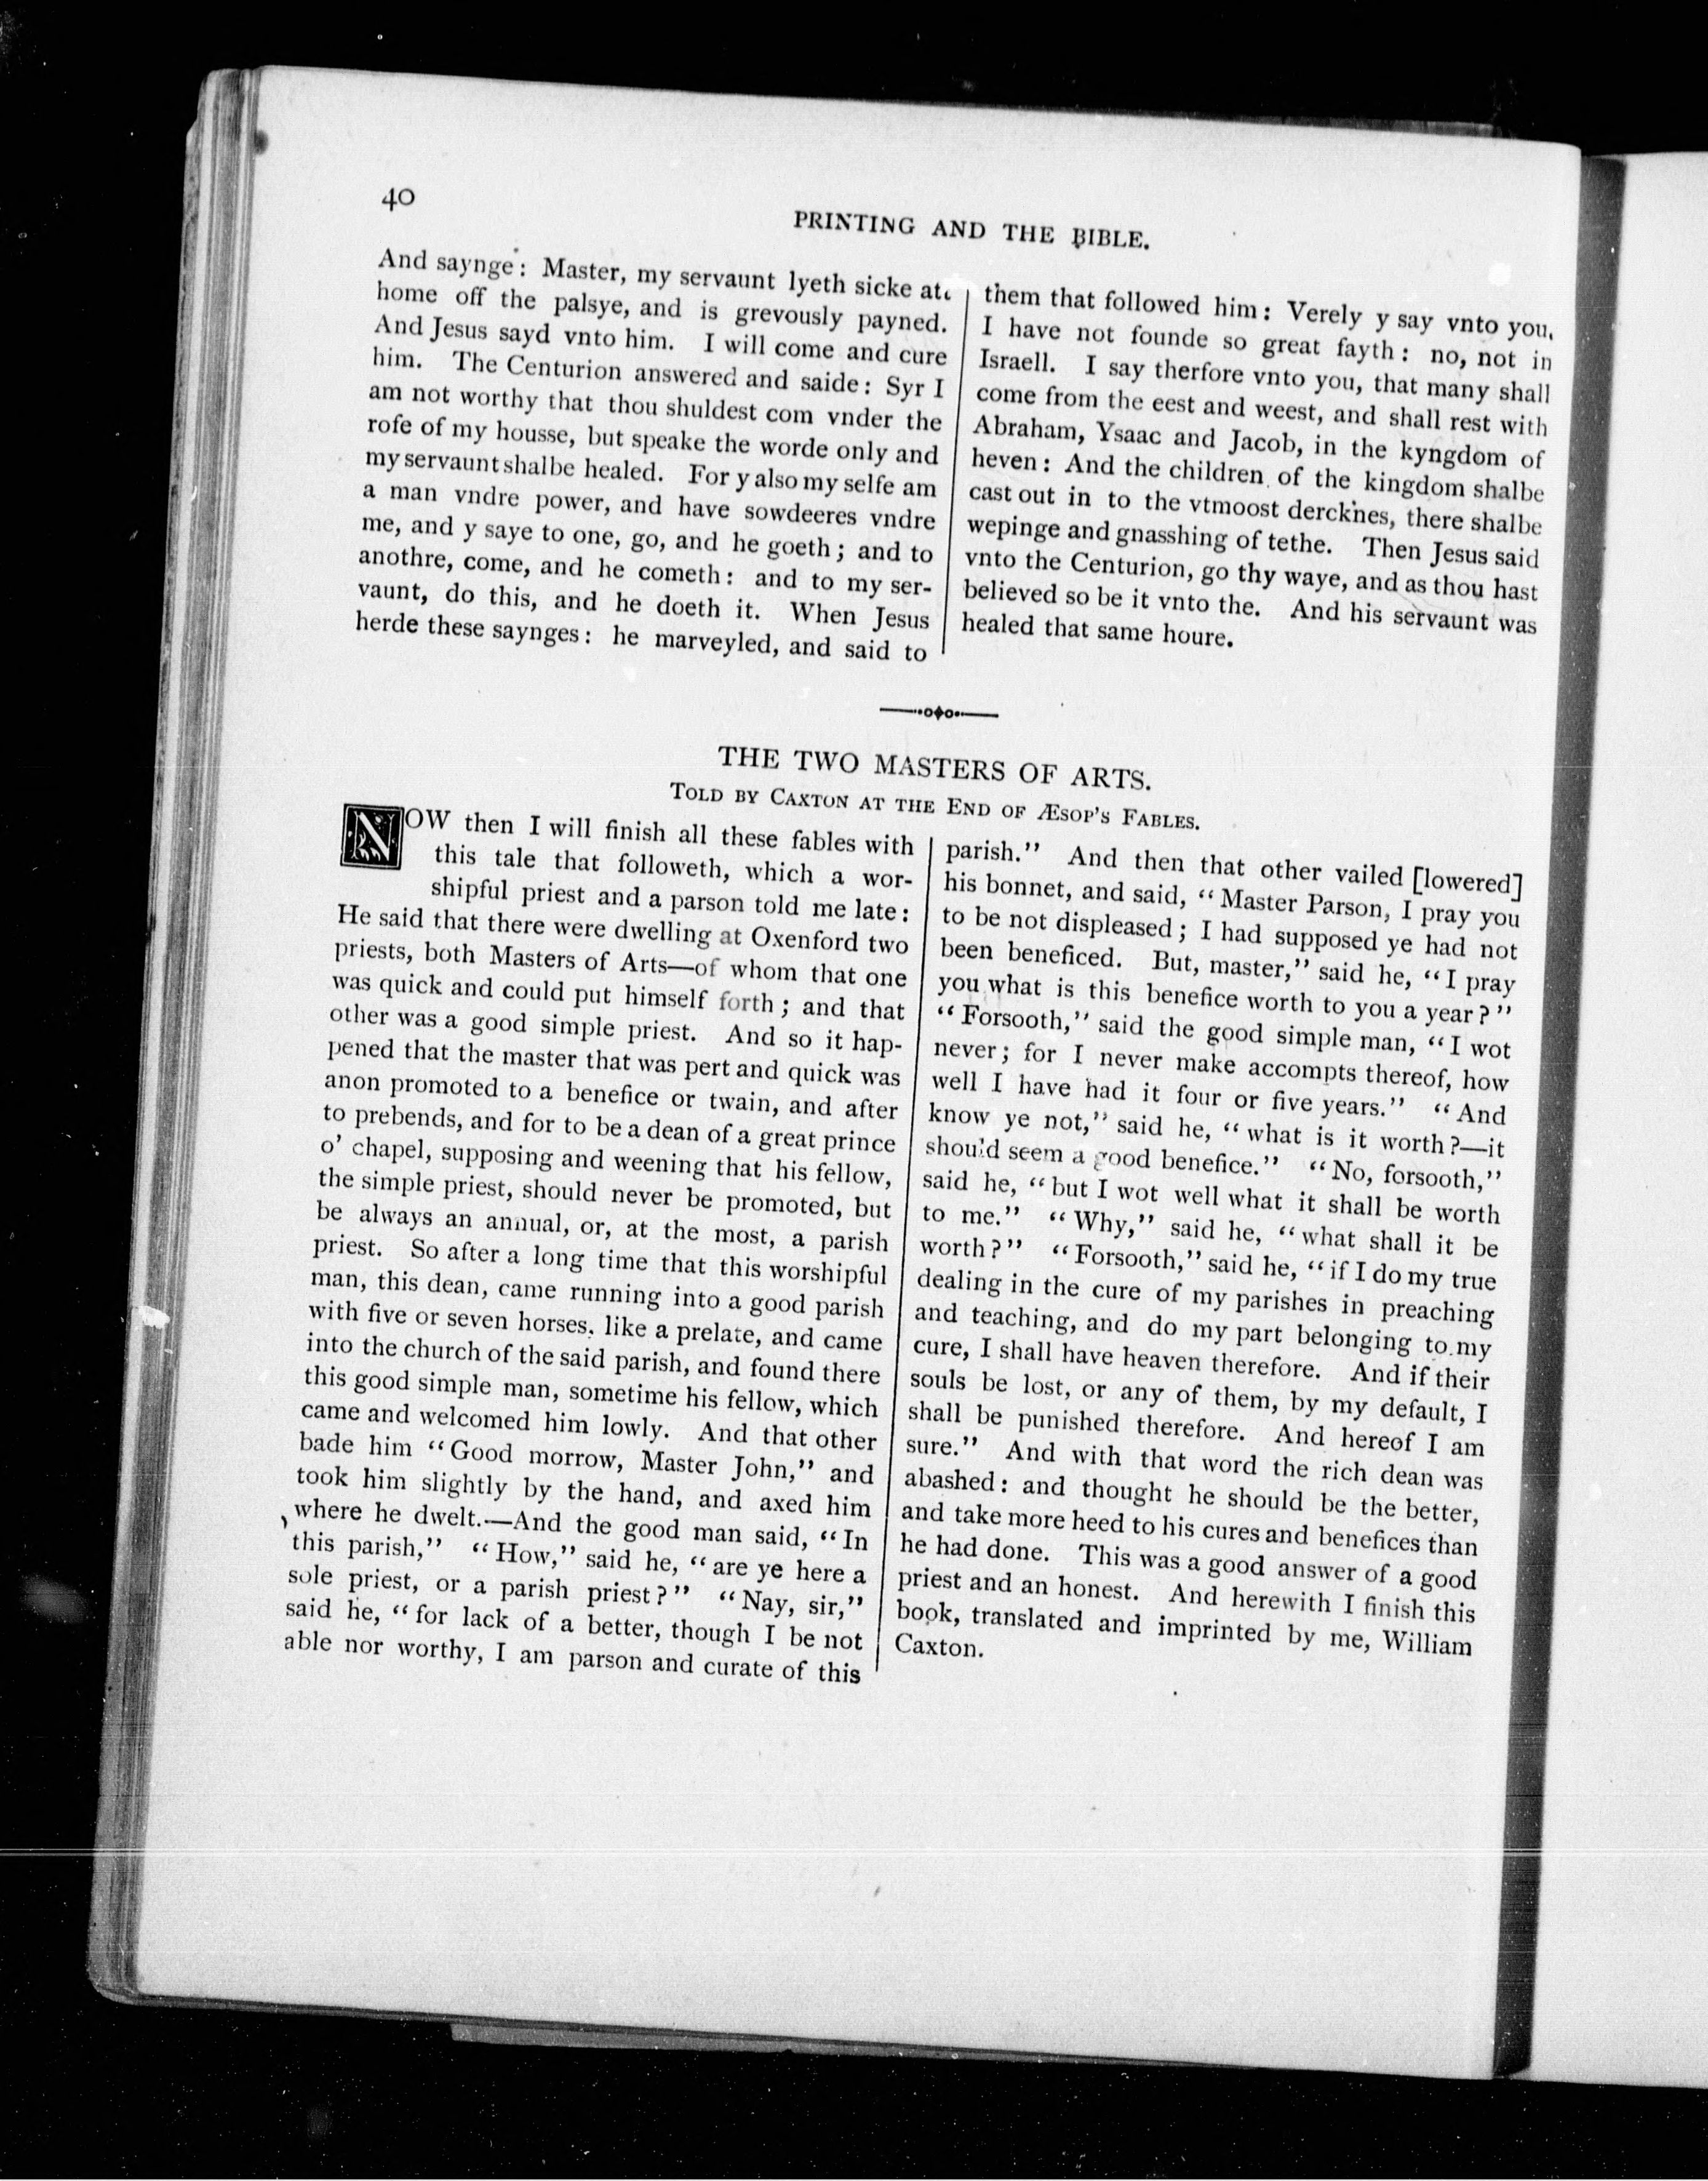 40
PRINTING AND THE BIBLE.
And saynge: Master, my servaunt lyeth sicke att
home off the palsye, and is grevously payned.
And Jesus sayd vnto him. I will come and cure
him. The Centurion answered and saide: Syr I
am not worthy that thou shuldest com vnder the
rofe of my housse, but speake the worde only and
my servaunt shalbe healed. For y also my selfe am
a man vndre power, and have sowdeeres vndre
me, and y saye to one, go, and he goeth; and to
anothre, come, and he cometh: and to my ser-
vaunt, do this, and he doeth it. When Jesus
herde these saynges: he marveyled, and said to
them that followed him: Verely y say vnto you,
I have not founde so great fayth: no, not in
Israell. I say therfore vnto you, that many shall
come from the eest and weest, and shall rest with
Abraham, Ysaac and Jacob, in the kyngdom of
heven: And the children of the kingdom shalbe
cast out in to the vtmoost dercknes, there shalbe
wepinge and gnasshing of tethe. Then Jesus said
vnto the Centurion, go thy waye, and as thou hast
believed so be it vnto the. And his servaunt was
healed that same houre.
THE TWO MASTERS OF ARTS.
TOLD BY CAXTON AT THE END OF ÆSOP'S FABLES.
NOW then I will finish all these fables with
this tale that followeth, which a wor-
shipful priest and a parson told me late:
He said that there were dwelling at Oxenford two
priests, both Masters of Arts—of whom that one
was quick and could put himself forth; and that
other was a good simple priest. And so it hap-
pened that the master that was pert and quick was
anon promoted to a benefice or twain, and after
to prebends, and for to be a dean of a great prince
o' chapel, supposing and weening that his fellow,
the simple priest, should never be promoted, but
be always an annual, or, at the most, a parish
priest. So after a long time that this worshipful
man, this dean, came running into a good parish
with five or seven horses, like a prelate, and came
into the church of the said parish, and found there
this good simple man, sometime his fellow, which
came and welcomed him lowly. And that other
bade him "Good morrow, Master John," and
took him slightly by the hand, and axed him
where he dwelt.—And the good man said, "In
this parish," "How," said he, "are ye here a
sole priest, or a parish priest?" "Nay, sir,"
said he, "for lack of a better, though I be not
able nor worthy, I am parson and curate of this
parish." And then that other vailed [lowered]
his bonnet, and said, "Master Parson, I pray you
to be not displeased; I had supposed ye had not
been beneficed. But, master," said he, "I pray
you what is this benefice worth to you a year?"
"Forsooth," said the good simple man, "I wot
never; for I never make accompts thereof, how
well I have had it four or five years." "And
know ye not," said he, "what is it worth?—it
should seem a good benefice." "No, forsooth,"
said he, "but I wot well what it shall be worth
to me." "Why," said he, "what shall it be
worth?" "Forsooth," said he, "if I do my true
dealing in the cure of my parishes in preaching
and teaching, and do my part belonging to my
cure, I shall have heaven therefore. And if their
souls be lost, or any of them, by my default, I
shall be punished therefore. And hereof I am
sure." And with that word the rich dean was
abashed: and thought he should be the better,
and take more heed to his cures and benefices than
he had done. This was a good answer of a good
priest and an honest. And herewith I finish this
book, translated and imprinted by me, William
Caxton.